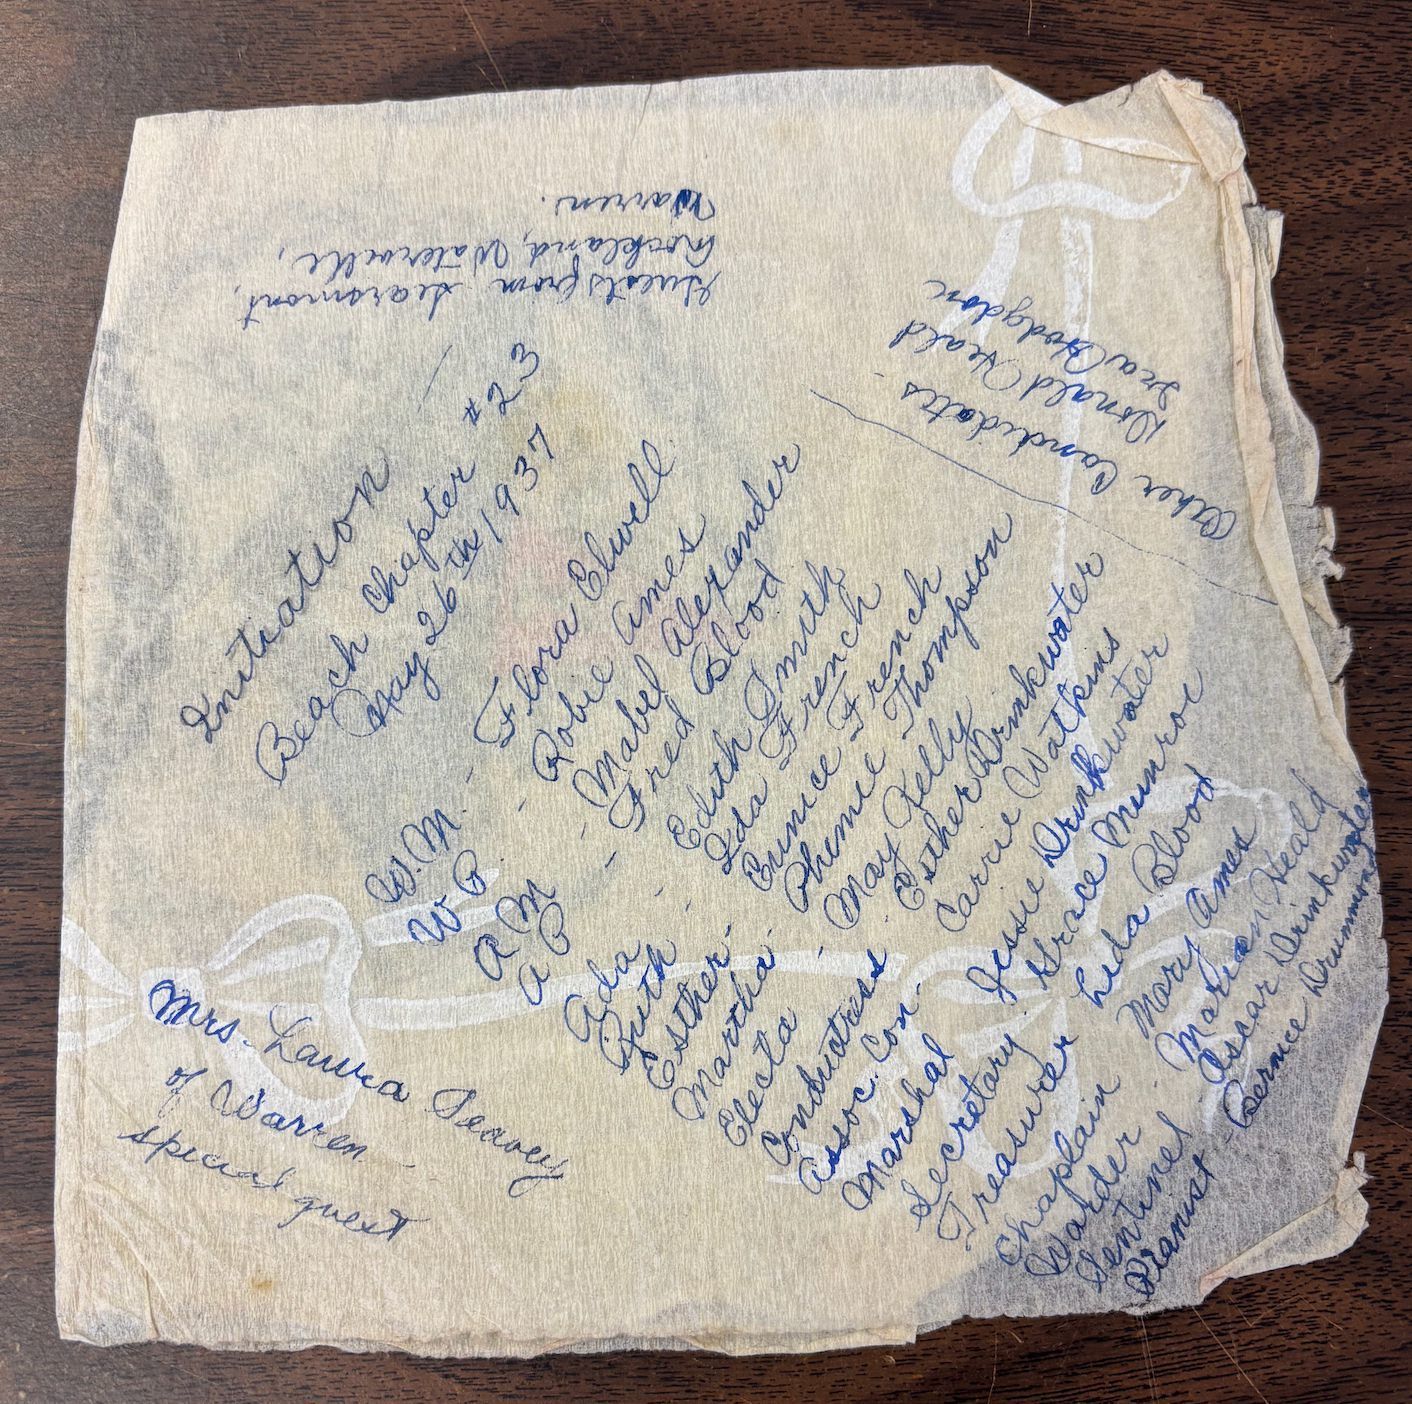 Initiation
Beach Chapter #23
May 26th 1937
W.M. - Flora Elwell
W P - Robie Ames
A M - Mabel Alexander
A P - Fred Blood
Ada - Edith Smith
Ruth - Ida French
Esther - Eunice French
Martha - Phemie Thompson
Electa - May Kelly
Conductress - Esther Drinkwater
Assoc. Con - Carrie Watkins
Marshal Jessie Drinkwater
Secretary Grace Munroe
Treasurer Lida Blood
Chaplain Mary Ames
Warder - Marian Heald
Sentinel Oscar Drinkwater
Pianist - Bernice Drummond
Mrs. Laura Seavey
of Warren -
special guest
Other Candidates.
Donald Heald
Ira Hodgdon
Guests from Searsmont,
Rockland, Waterville,
Warren.